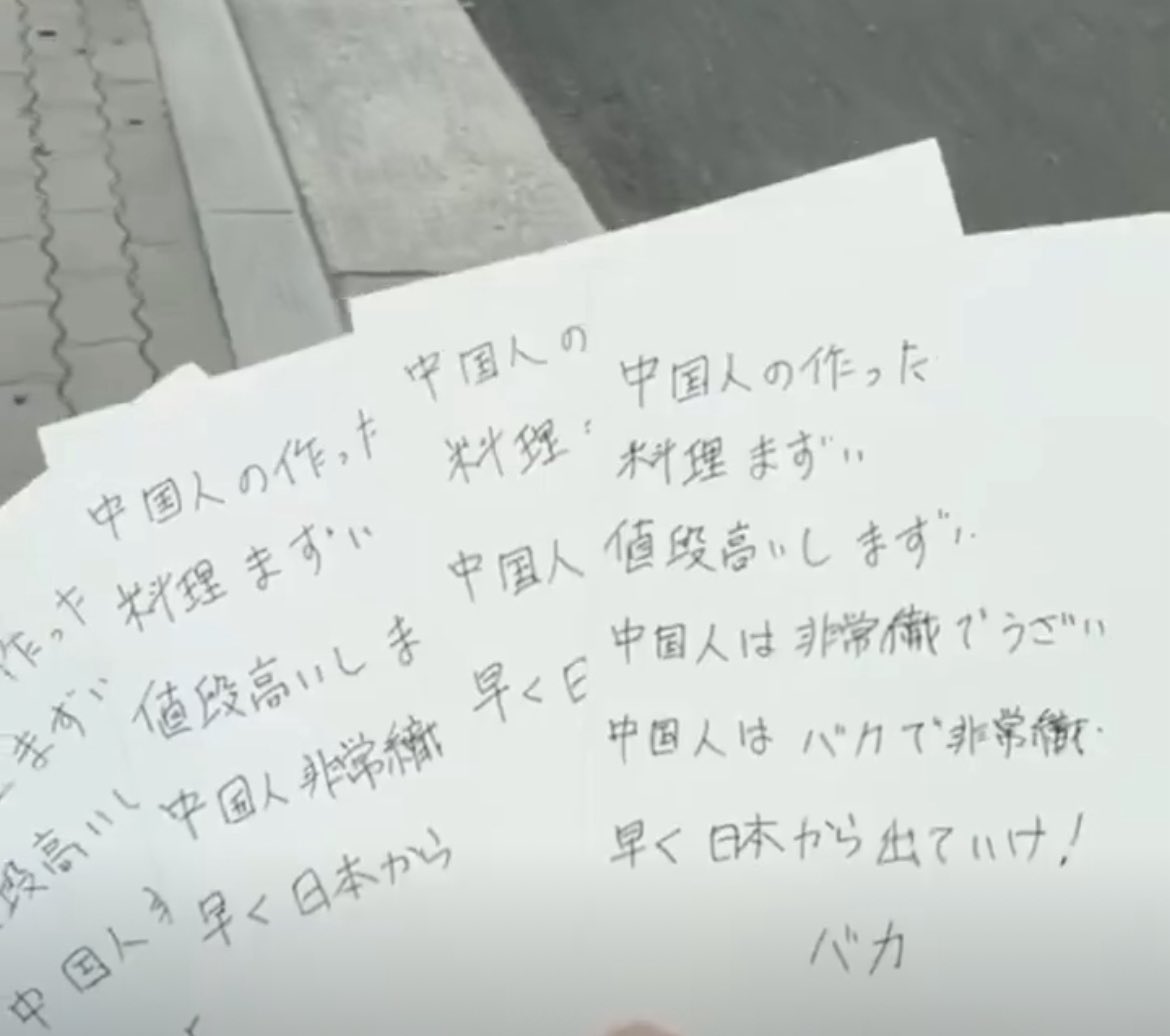 作った
まずい
段高いし
中国人
中国人の作った
料理まずい
値段高いしま
中国人非常織
早く日本から
中国人の
料理
中国人
早く日
中国人の作った
料理まずい
値段高いしまずい
中国人は非常織でうざい
中国人はバカで非常織.
早く日本から出ていけ!
バカ